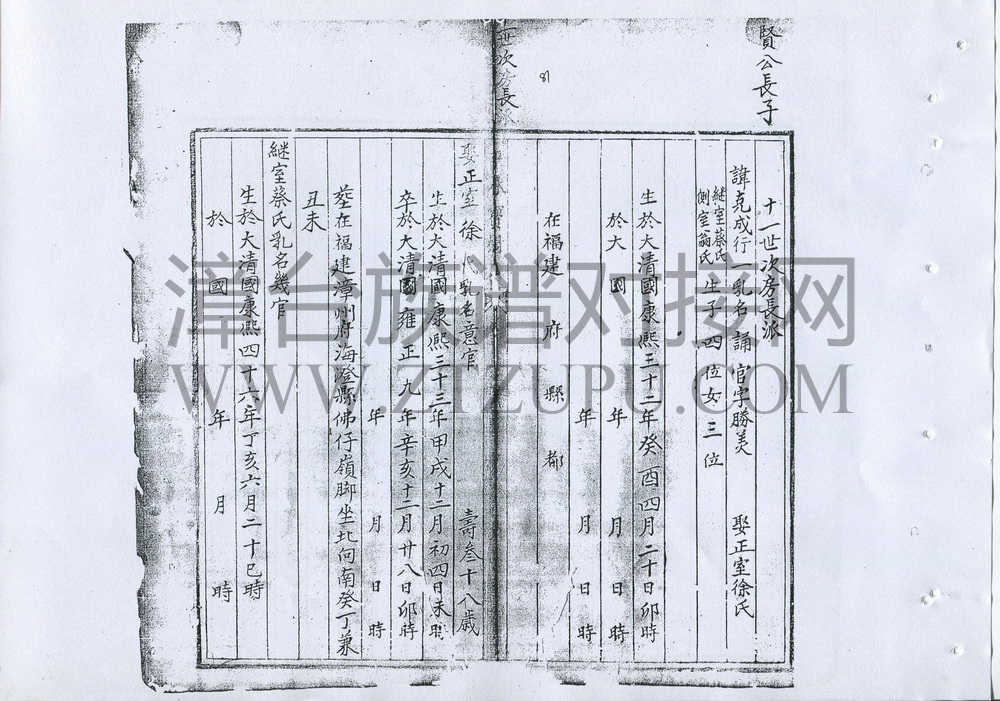 賢公長子
十一世次房長派
諱克成行一乳名誦官字勝美 娶正室徐氏
継室蔡氏
側室翁氏
生子四位女三位
生於大清國康熙三十二年癸酉四月二十日卯時
於大 國 年 月 日 時
年 月 日 時
在福建 府 縣 都
世次房長
81
娶正室徐氏乳名意官 壽叁十八歲
生於大清國康熙三十三年甲戌十二月初四日未時
卒於大清國雍正九年辛亥十二月廿八日卯時
年 月 日 時
塟在福建漳州府海澄縣佛仔嶺脚坐北向南癸丁兼
丑未
継室蔡氏乳名幾官
生於大清國康熙四十六年丁亥六月二十巳時
於 國 年 月 時
漳台族谱对接网
WWW.ZTZUPU.COM